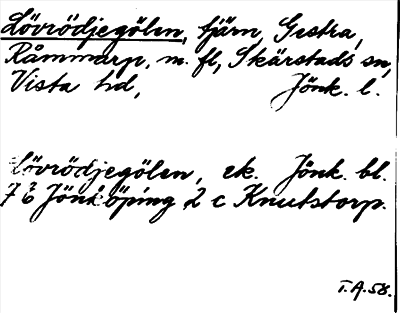 Lövrödjegölen, tjärn, Gestra,
Råmmarp, m. fl, Skärstads sn,
Vista hd, Jönk. l.
Lövrödjegölen, ek. Jönk. bl.
7 6 Jönköping 2 c Knutstorp.
T.A.58.